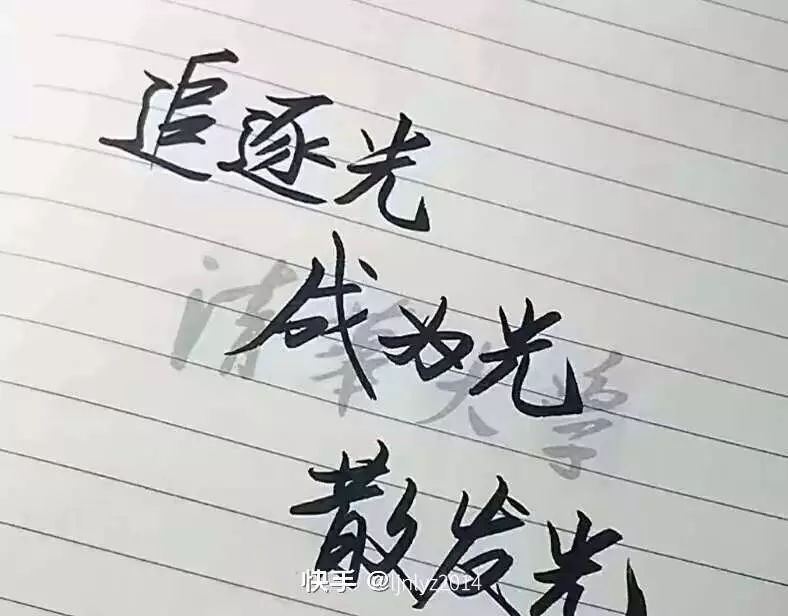 追逐光
成为光
清華大学
散发光
快手 @ljnlyz2014